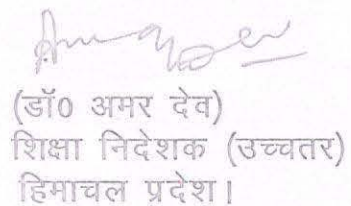 (डॉ0 अमर देव)
शिक्षा निदेशक (उच्चतर)
हिमाचल प्रदेश।